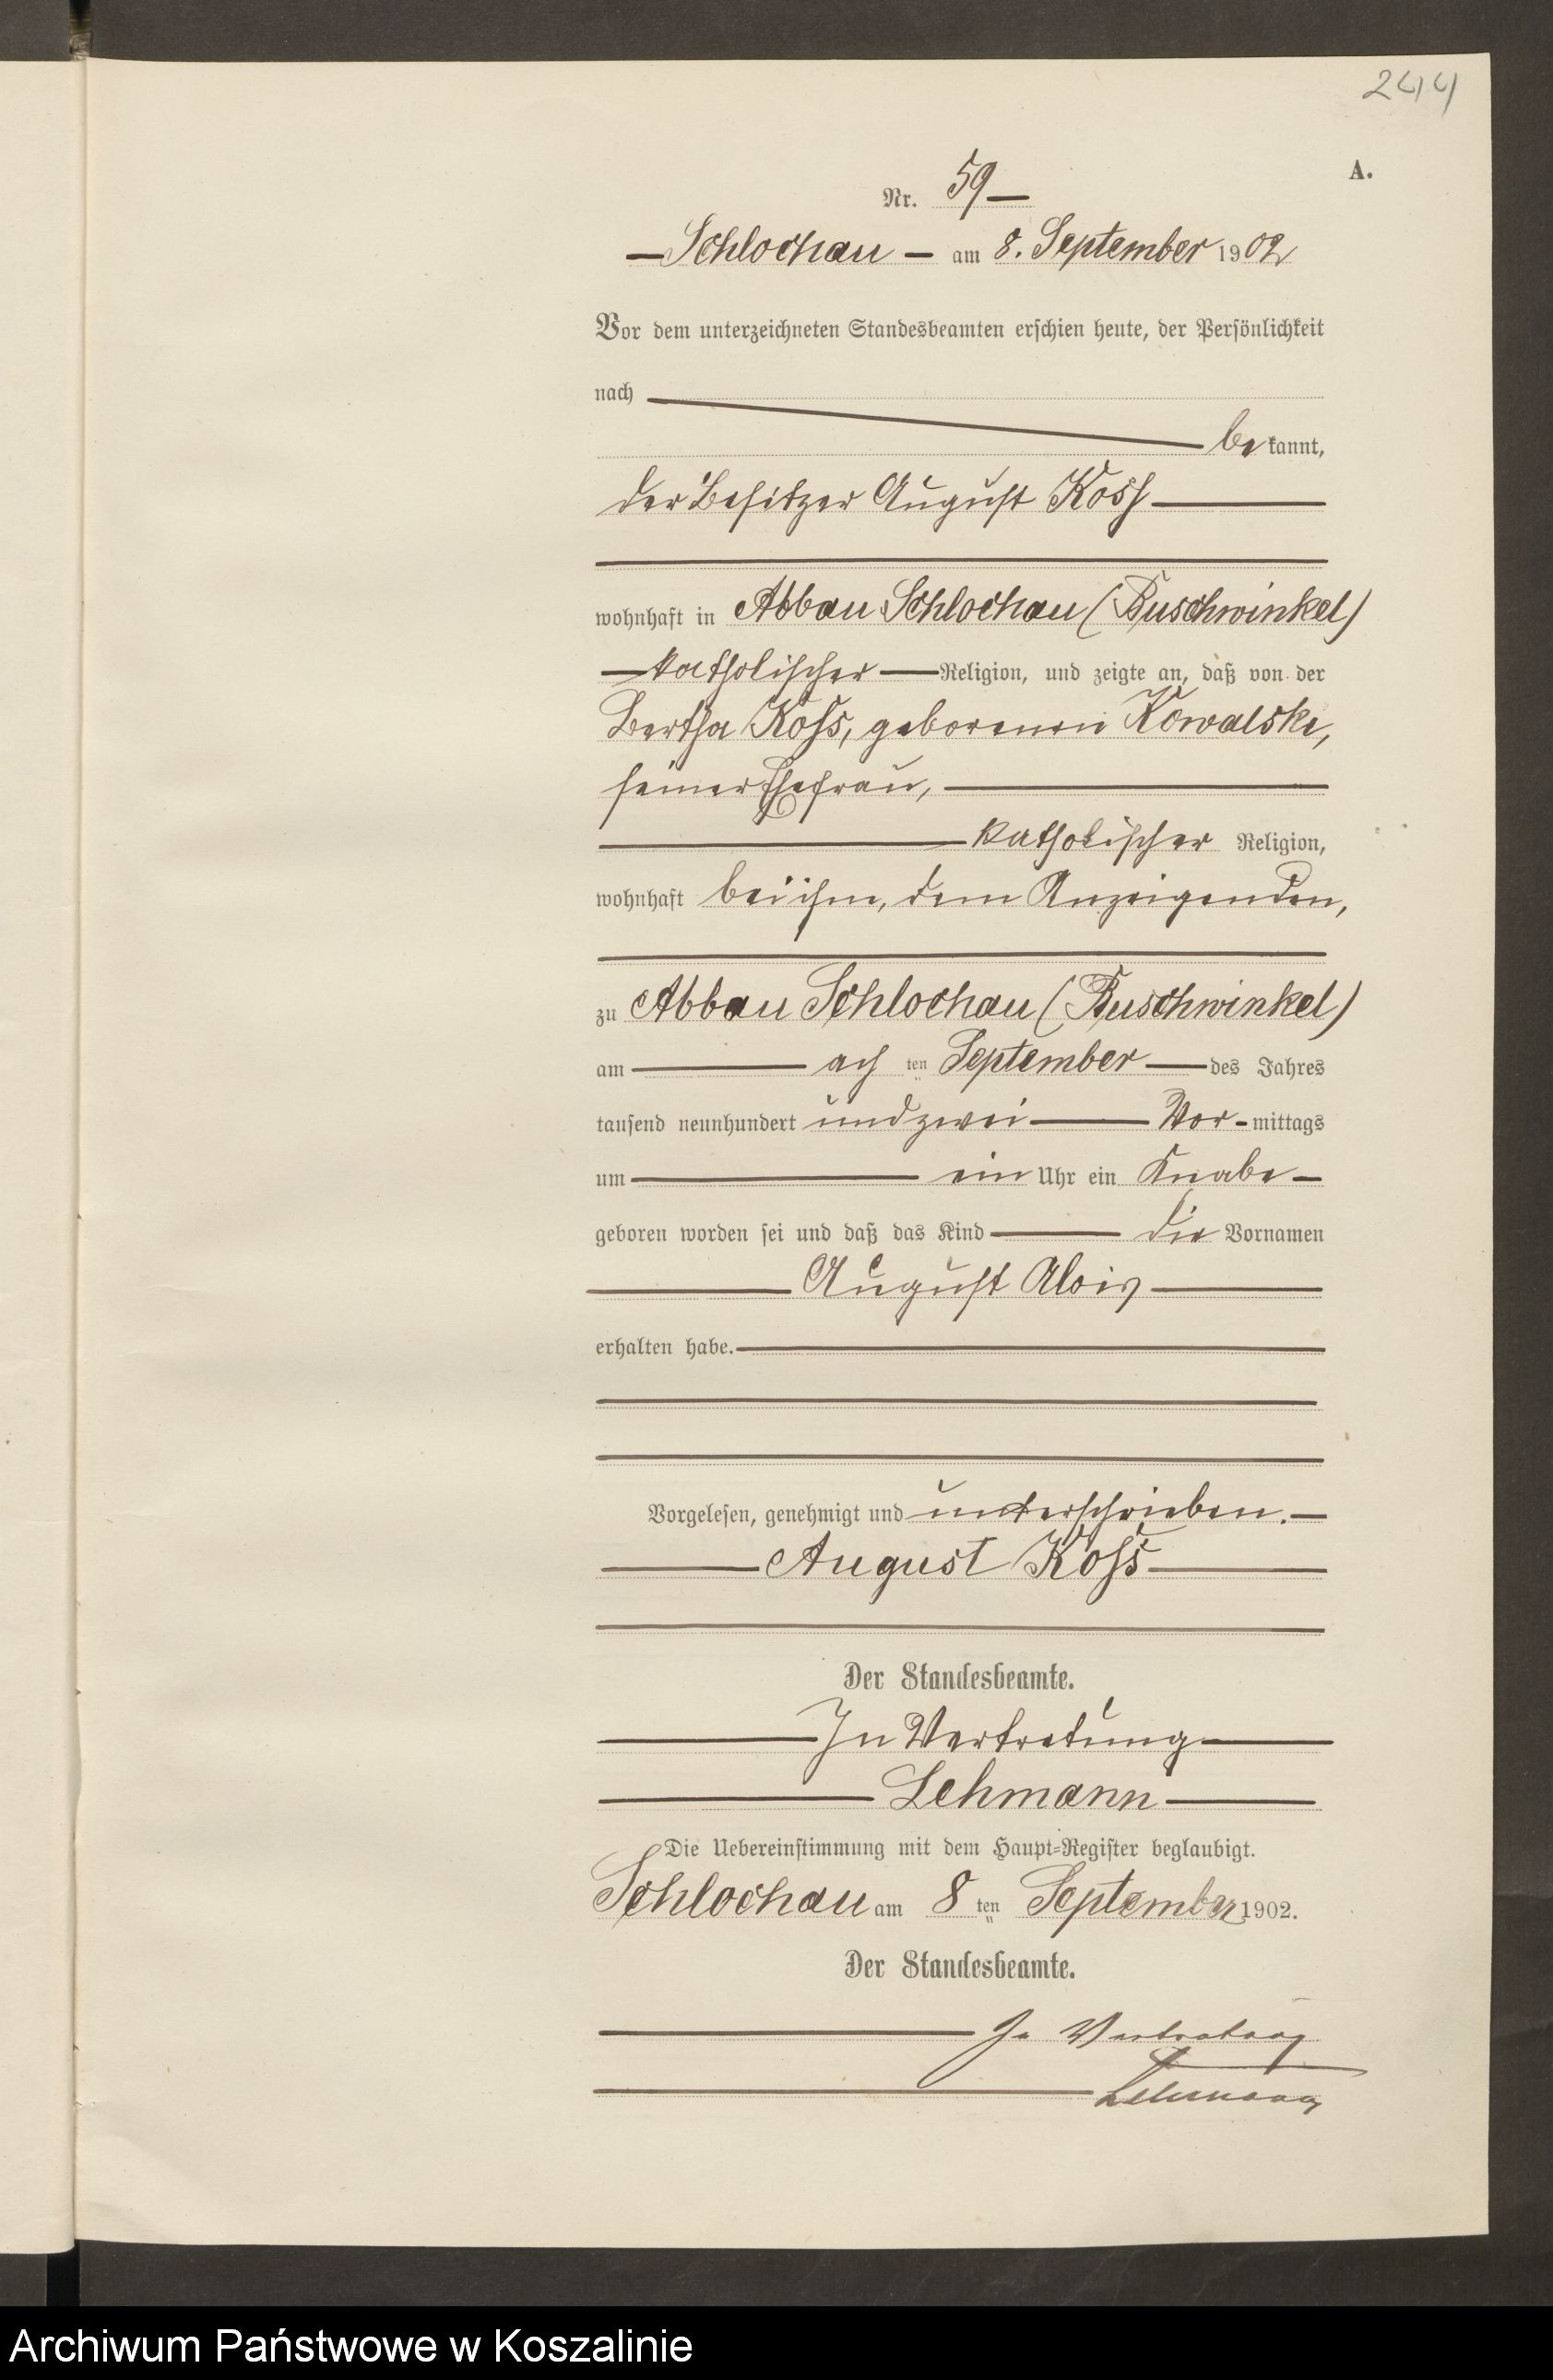 244
A.
Nr. 59
Schlochau am 8. September 1902
Vor dem unterzeichneten Standesbeamten erschien heute, der Persönlichkeit
nach
bekannt,
der Besitzer August Koss
wohnhaft in Abbau Schlochau (Buschwinkel)
katholischer Religion, und zeigte an, daß von der
Bertha Koss, geborenen Kowalske,
seiner Ehefrau,
katholischer Religion,
wohnhaft bei ihm, dem Anzeigenden,
zu Abbau Schlochau (Buschwinkel)
am achten September des Jahres
tausend neunhundert und zwei Vor-mittags
um ein Uhr ein Knabe
geboren worden sei und daß das Kind die Vornamen
August Alois
erhalten habe.
Vorgelesen, genehmigt und unterschrieben.
August Koss
Der Standesbeamte.
In Vertretung
Lehmann
Die Uebereinstimmung mit dem Haupt-Register beglaubigt.
Schlochau am 8 ten September 1902.
Der Standesbeamte.
In Vertretung
Lehmann
Archiwum Państwowe w Koszalinie